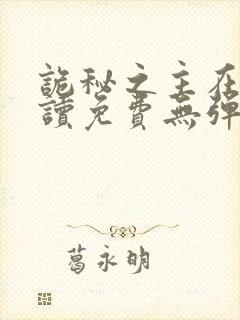 詭秘之主在
讀免費無彈
葛永明